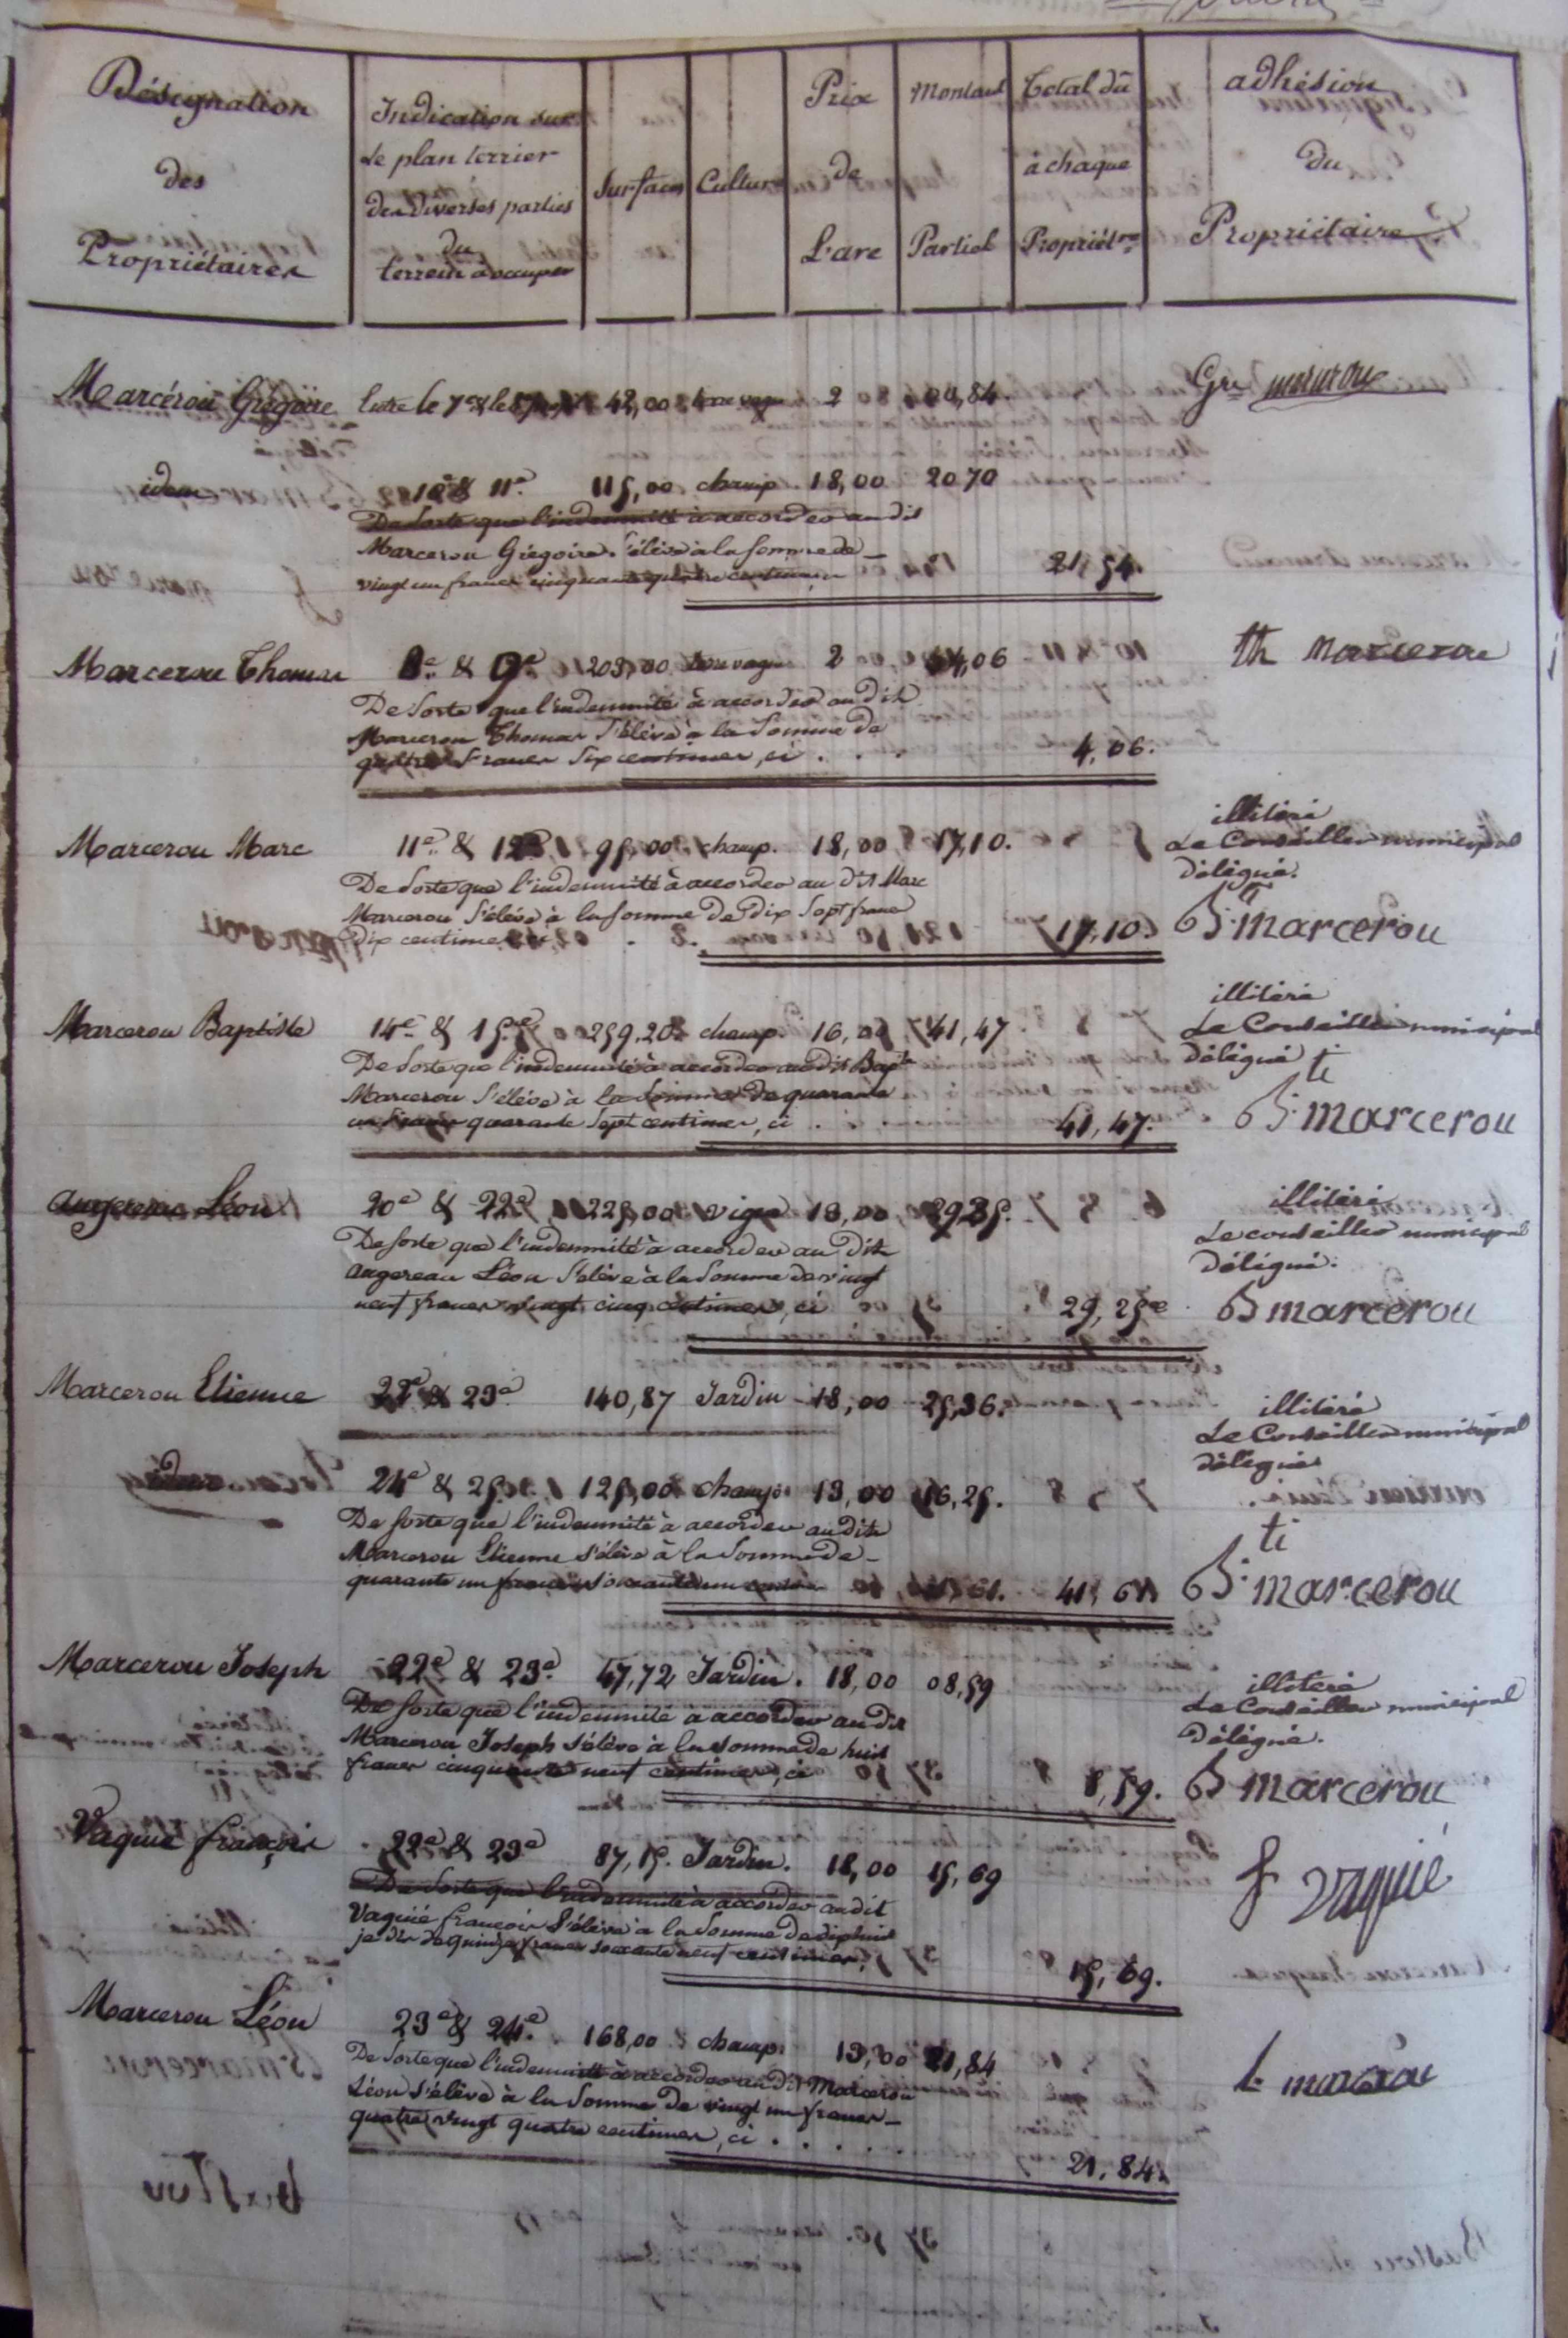 Désignation
des
Propriétaires
Indication sur
Le plan terrier
des diverses parties
du
terrein à occuper
Surfaces
Culture
Prix
de
L'are
Montant
Partiel
Total dû
à chaque
Propriétre
adhésion
du
Propriétaire
Marcérou Grégoire Entre le 7e & le 42,00 terre vague 2 00,84. Gre marcerou
idem 10e & 11e 115,00 champ. 18,00 20 70
De Sorte que l'indemnité à accorder au dit
Marcerou Grégoire s'élève à la somme de
vingt un francs cinquante quatre centimes 21 54.
Marcerou Thomas 8e & 9e 203,00 terre vague 2 04,06 th marcerou
De Sorte que l'indemnité à accorder au dit
Marcerou Thomas S'élève à la Somme de
quatre francs Six centimes, ci . . . 4,06.
Marcerou Marc 11e & 12e 95,00 champ. 18,00 17,10. illiteré
Le Conseiller municipal
délégué.
De Sorte que l'indemnité à accorder au dit Marc
Marcerou S'élève à la somme de dix Sept francs
dix centimes 17,10. Bti marcerou
Marcerou Baptiste 14e & 15e 259,20 champ. 16,00 41,47 illiteré
Le Conseiller municipal
délégué
De Sorte que l'indemnité à accorder au dit Bapte
Marcerou S'élève à la Somme de quarante
un francs quarante Sept centimes, ci . . . 41,47. Bti marcerou
Angereau Léon 20e & 22e 225,00 vigne 13,00 29 25. illiteré
Le conseiller municipal
délégué.
De Sorte que l'indemnité à accorder au dit
Angereau Léon S'élève à la Somme de vingt
neuf francs vingt cinq centimes, ci 29,25c B marcerou
Marcerou Etienne 22e & 23e 140,87 Jardin 18,00 25,36. illiteré
Le Conseiller municipal
délégué
idem 24e & 25e 125,00 champ. 13,00 16,25.
De Sorte que l'indemnité à accorder au dit
Marcerou Etienne s'élève à la Somme de
quarante un francs soixante un 41,61. 41,61 Bti marcerou
Marcerou Joseph 22e & 23e 47,72 Jardin. 18,00 08,59 illiteré
Le Conseiller municipal
délégué.
De Sorte que l'indemnité à accorder au dit
Marcerou Joseph s'élève à la somme de huit
francs cinquante neuf centimes, ci 8,59. B marcerou
Vaquié françois 22e & 23e 87,15. Jardin. 18,00 15,69 f vaquié
De Sorte que l'indemnité à accorder au dit
Vaquié françois S'élève à la Somme de dixhuit
je dis de quinze francs soixante neuf centimes, 15,69.
Marcerou Léon 23e & 24e 168,00 champ. 13,00 21,84 L marcerou
De Sorte que l'indemnité à accorder au dit Marcerou
Léon s'élève à la Somme de vingt un francs
quatre vingt quatre centimes, ci . . . . . 21,84.